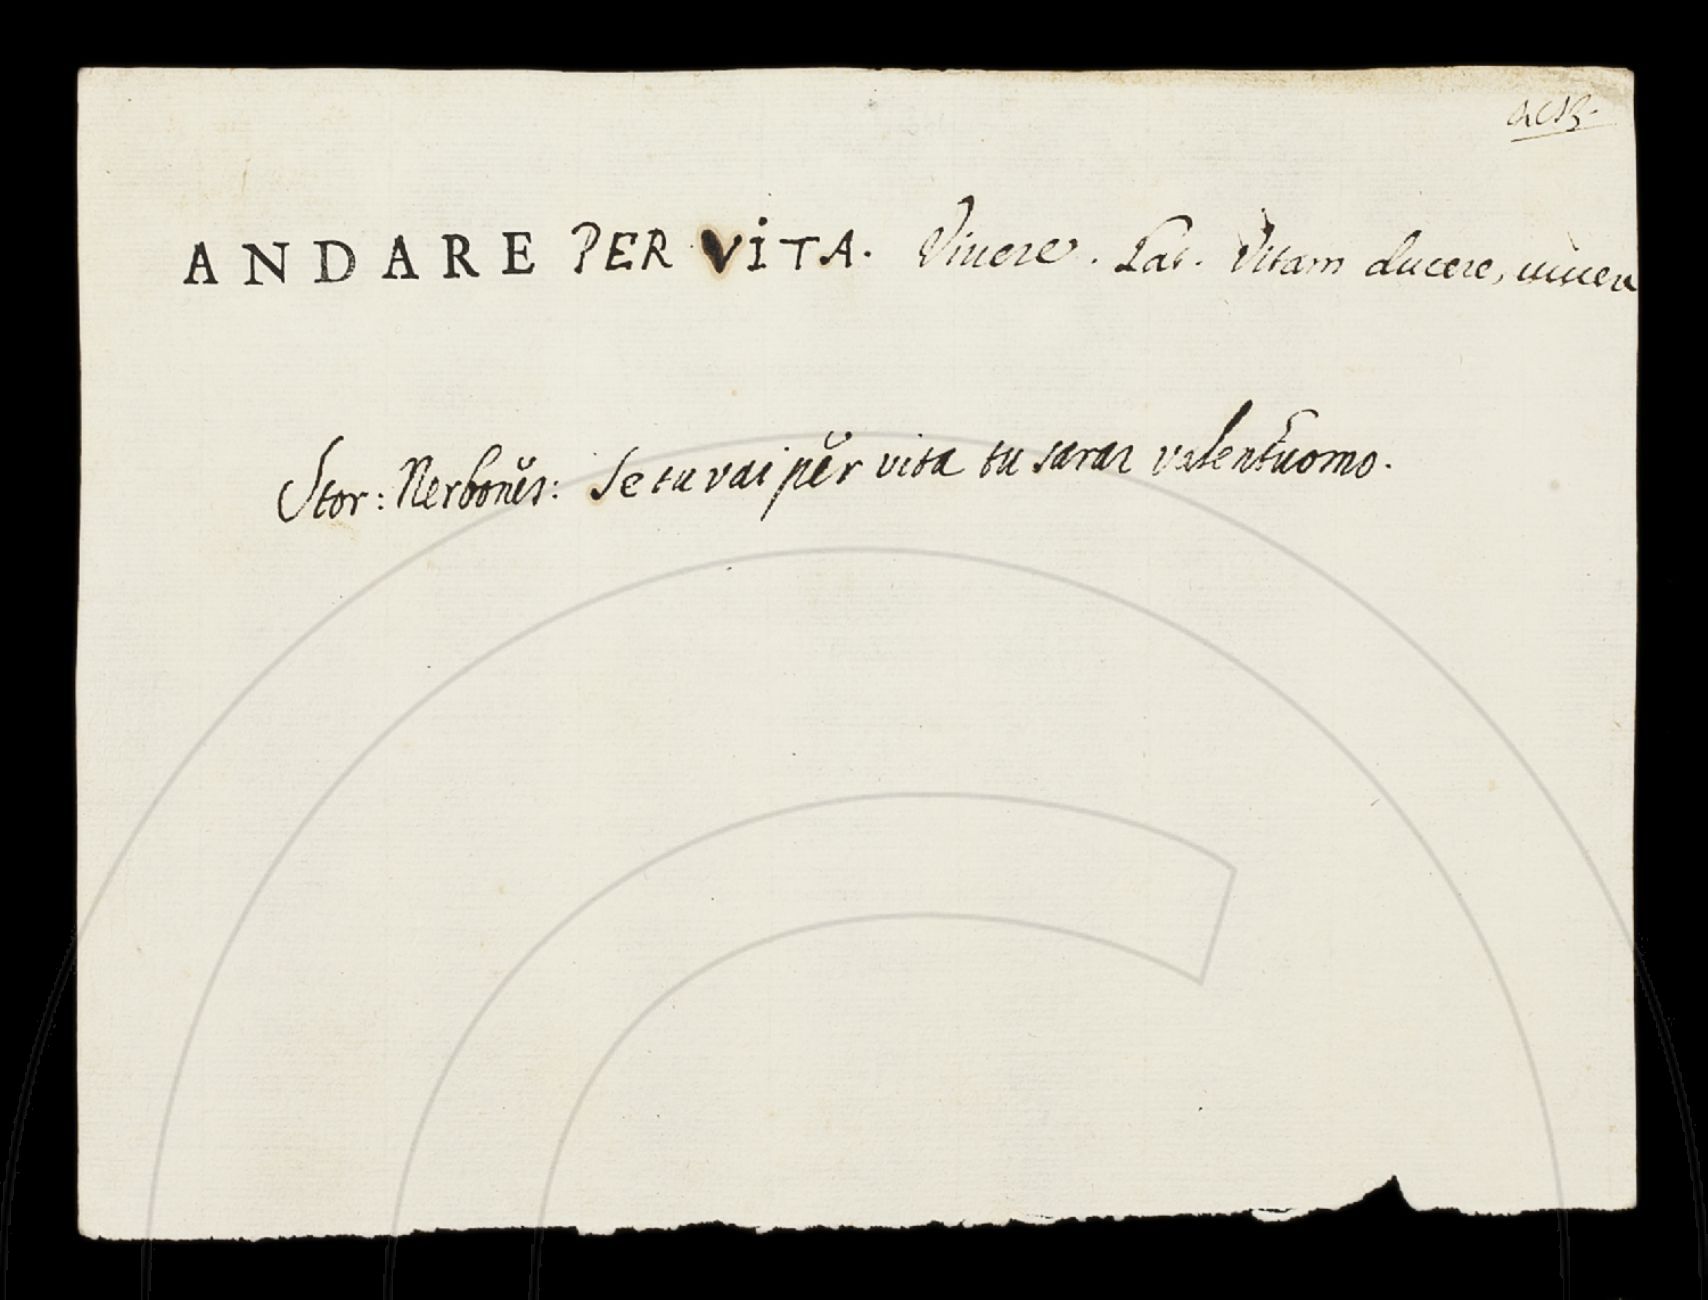 ANDARE PER VITA. Viuere. Lat. Vitam ducere, uiuere
Stor: Nerbones: Se tu vai per vita tu sarai valentuomo.